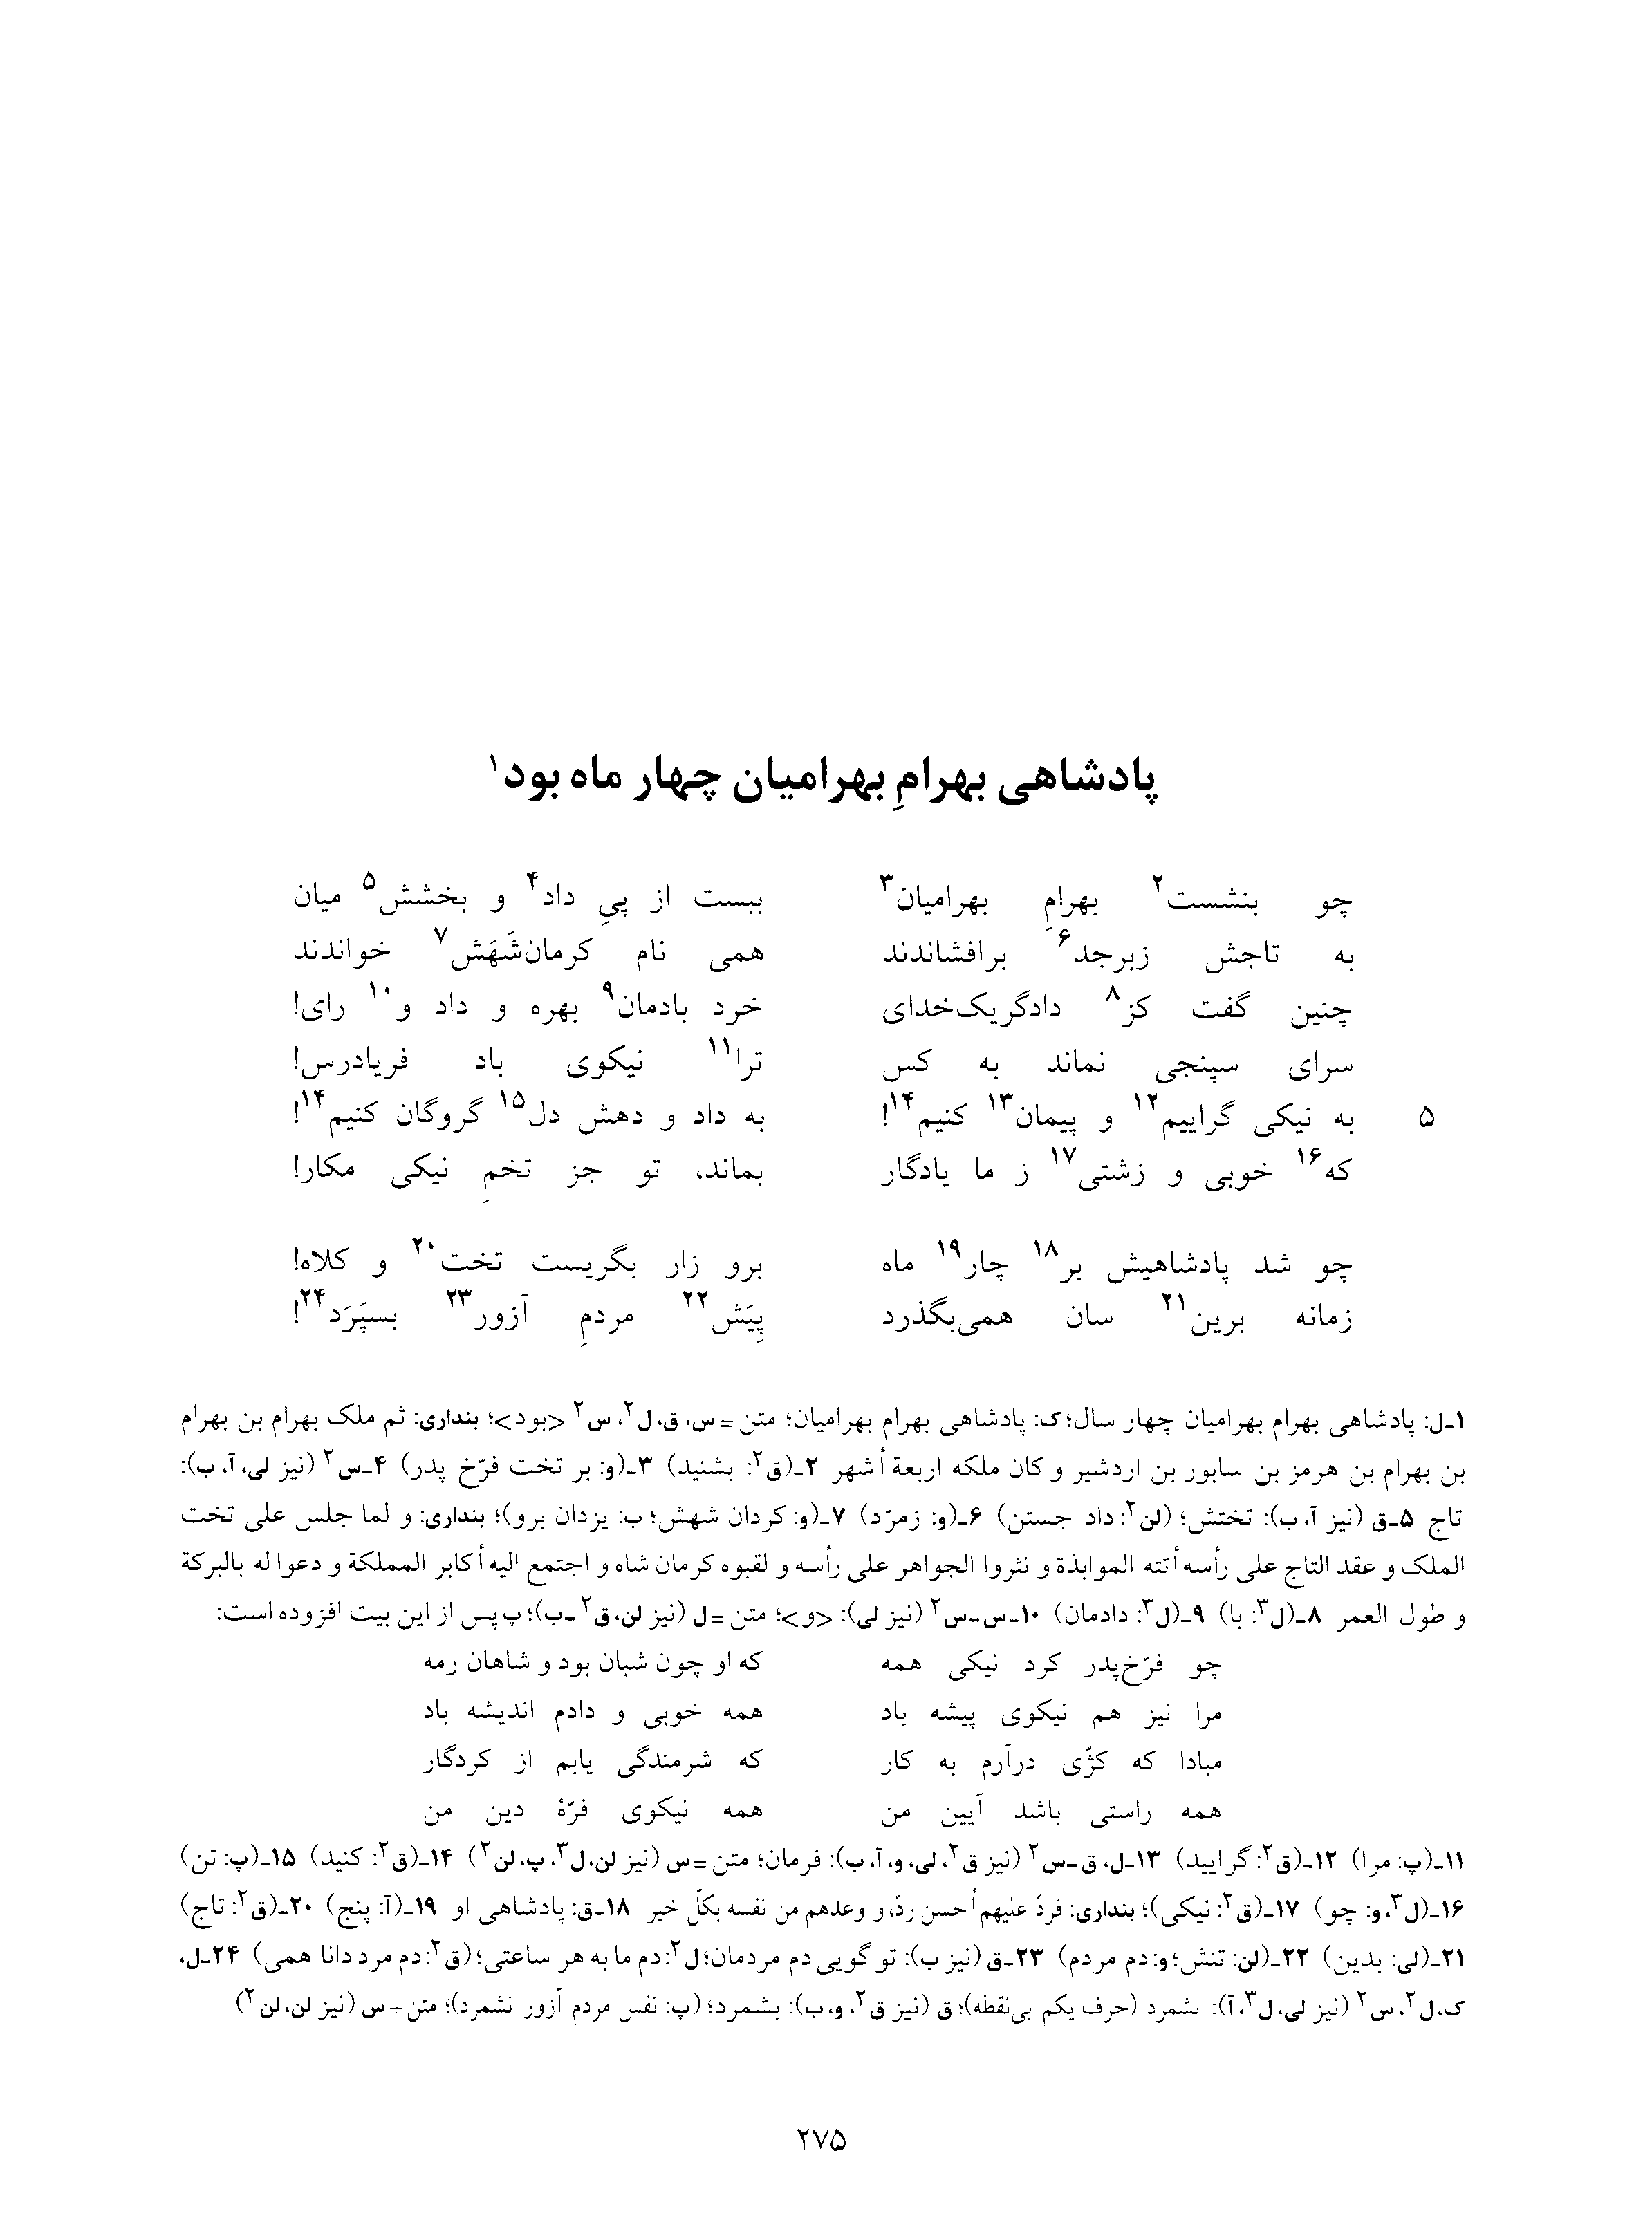 پادشاهی بهرامِ بهرامیان چهار ماه بود۱
چو بنشست۲ بهرامِ بهرامیان۳ ببست از پیِ داد۴ و بخشش۵ میان
به تاجش زبرجد۶ برافشاندند همی نام کرمان‌شَهَش۷ خواندند
چنین گفت کز۸ دادگر‌یک‌خدای خرد بادمان۹ بهره و داد و۱۰ رای!
سرای سپنجی نماند به کس ترا۱۱ نیکوی باد فریادرس!
۵ به نیکی گراییم۱۲ و پیمان۱۳ کنیم۱۴! به داد و دهش دل۱۵ گروگان کنیم۱۴!
که۱۶ خوبی و زشتی۱۷ ز ما یادگار بماند، تو جز تخمِ نیکی مکار!
چو شد پادشاهیش بر۱۸ چار۱۹ ماه برو زار بگریست تخت۲۰ و کلاه!
زمانه برین۲۱ سان همی‌بگذرد پِیَش۲۲ مردمِ آزور۲۳ بسپَرَد۲۴!
۱ـ‌ل: پادشاهی بهرام بهرامیان چهار سال؛ ک: پادشاهی بهرام بهرامیان؛ متن = س، ق، ل۲، س۲ <بود>؛ بنداری: ثم ملک بهرام بن بهرام
بن بهرام بن هرمز بن سابور بن اردشیر و کان ملکه اربعة أشهر ۲ـ(ق۲: بشنید) ۳ـ(و: بر تخت فرّخ پدر) ۴ـ‌س۲ (نیز لی، آ، ب):
تاج ۵ـ‌ق (نیز آ، ب): تختش؛ (لن۲: داد جستن) ۶ـ(و: زمرّد) ۷ـ(و: کردان شهش؛ ب: یزدان برو)؛ بنداری: و لما جلس علی تخت
الملک و عقد التاج علی رأسه أتته الموابذة و نثروا الجواهر علی رأسه و لقبوه کرمان شاه و اجتمع الیه أکابر المملکة و دعوا له بالبرکة
و طول العمر ۸ـ(ل۳: با) ۹ـ(ل۳: دادمان) ۱۰ـ‌س‌ـ‌س۲ (نیز لی): <و>؛ متن = ل (نیز لن، ق۲ ـ‌ب)؛ پ پس از این بیت افزوده است:
چو فرّخ‌پدر کرد نیکی همه که او چون شبان بود و شاهان رمه
مرا نیز هم نیکوی پیشه باد همه خوبی و دادم اندیشه باد
مبادا که کژّی درآرم به کار که شرمندگی یابم از کردگار
همه راستی باشد آیین من همه نیکوی فرّهٔ دین من
۱۱ـ(پ: مرا) ۱۲ـ(ق۲: گرایید) ۱۳ـ‌ل، ق‌ـ‌س۲ (نیز ق۲، لی، و، آ، ب): فرمان؛ متن = س (نیز لن، ل۳، پ، لن۲) ۱۴ـ(ق۲: کنید) ۱۵ـ(پ: تن)
۱۶ـ(ل۳، و: چو) ۱۷ـ(ق۲: نیکی)؛ بنداری: فردّ علیهم أحسن ردّ، و وعدهم من نفسه بکلّ خیر ۱۸ـ‌ق: پادشاهی او ۱۹ـ(آ: پنج) ۲۰ـ(ق۲: تاج)
۲۱ـ(لی: بدین) ۲۲ـ(لن: تنش؛ و: دم مردم) ۲۳ـ‌ق (نیز ب): تو گویی دم مردمان؛ ل۲: دم ما به هر ساعتی؛ (ق۲: دم مرد دانا همی) ۲۴ـ‌ل،
ک، ل۲، س۲ (نیز لی، ل۳، آ): ٮشمرد (حرف یکم بی‌نقطه)؛ ق (نیز ق۲، و، ب): بشمرد؛ (پ: نفس مردم آزور نشمرد)؛ متن = س (نیز لن، لن۲)
۲۷۵